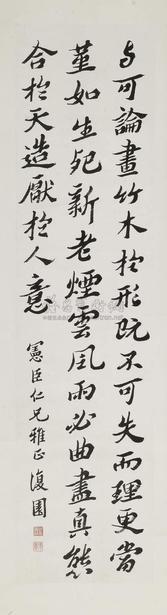 与可論畫竹木於形既不可失而理更當
堇如生死新老煙雲風雨必曲盡真態
合於天造厭於人意
憲臣仁兄雅正 復園